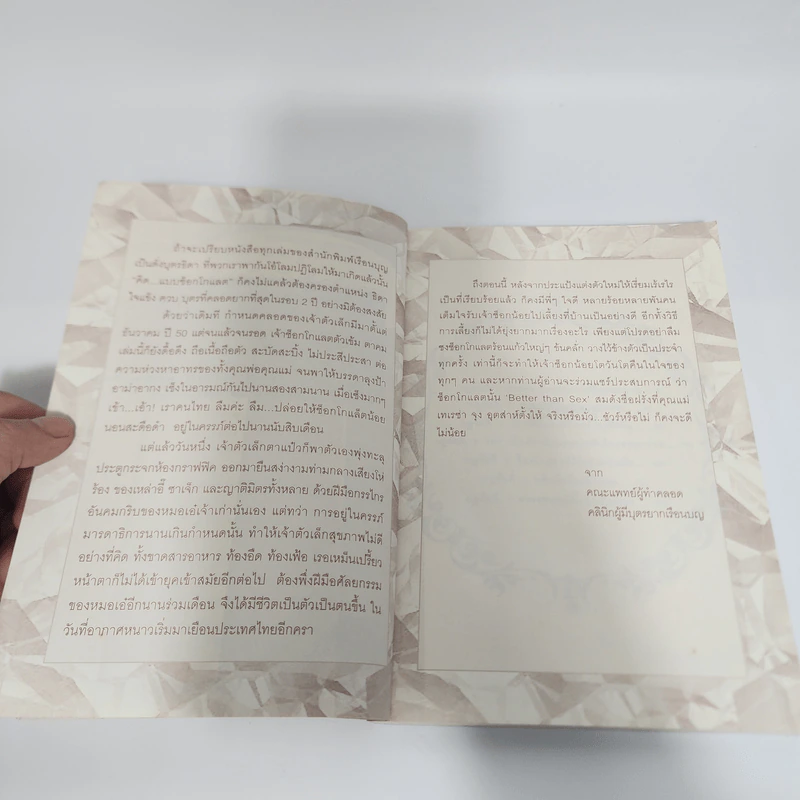 ถ้าจะเปรียบหนังสือทุกเล่มของสำนักพิมพ์เรือนบุญ
เป็นดั่งบุตรธิดา ที่พวกเราพากันโอ้โลมปฏิโลมให้มาเกิดแล้วนั้น
"คิด...แบบช็อกโกแลต" ก็คงไม่แคล้วต้องครองตำแหน่ง ธิดา
ใจแข็ง ควบ บุตรที่คลอดยากที่สุดในรอบ 2 ปี อย่างมิต้องสงสัย
ด้วยว่าเดิมที กำหนดคลอดของเจ้าตัวเล็กมีมาตั้งแต่
ธันวาคม ปี 50 แต่จนแล้วจนรอด เจ้าช็อกโกแลตตัวเข้ม ตาคม
เล่มนี้ก็ยังดื้อดึง ถือเนื้อถือตัว สะบัดสะบิ้ง ไม่ประสีประสา ต่อ
ความห่วงหาอาทรของทั้งคุณพ่อคุณแม่ จนพาให้บรรดาลุงป้า
อาม่าอากง เซ็งในอารมณ์กันไปนานสองสามนาน เมื่อเซ็งมากๆ
เข้า...เอ้า! เราคนไทย ลืมค่ะ ลืม...ปล่อยให้ช็อกโกแล็ตน้อย
นอนสะดือดำ อยู่ในครรภ์ต่อไปนานนับสิบเดือน
แต่แล้ววันหนึ่ง เจ้าตัวเล็กตาแป๋วก็พาตัวเองพุ่งทะลุ
ประตูกระจกห้องกราฟฟิค ออกมายืนสง่างามท่ามกลางเสียงโห่
ร้อง ของเหล่าอี๊ ซาเจ็ก และญาติมิตรทั้งหลาย ด้วยฝีมือกรรไกร
อันคมกริบของหมอเอ๋เจ้าเก่านั่นเอง แต่ทว่า การอยู่ในครรภ์
มารดาธิการนานเกินกำหนดนั้น ทำให้เจ้าตัวเล็กสุขภาพไม่ดี
อย่างที่คิด ทั้งขาดสารอาหาร ท้องอืด ท้องเฟ้อ เรอเหม็นเปรี้ยว
หน้าตาก็ไม่ได้เข้ายุคเข้าสมัยอีกต่อไป ต้องพึ่งฝีมือศัลยกรรม
ของหมอเอ๋อีกนานร่วมเดือน จึงได้มีชีวิตเป็นตัวเป็นตนขึ้น ใน
วันที่อากาศหนาวเริ่มมาเยือนประเทศไทยอีกครา
ถึงตอนนี้ หลังจากประแป้งแต่งตัวใหม่ให้เรี่ยมเร้เรไร
เป็นที่เรียบร้อยแล้ว ก็คงมีพี่ๆ ใจดี หลายร้อยหลายพันคน
เต็มใจรับเจ้าช็อกน้อยไปเลี้ยงที่บ้านเป็นอย่างดี อีกทั้งวิธี
การเลี้ยงก็ไม่ได้ยุ่งยากมากเรื่องอะไร เพียงแต่โปรดอย่าลืม
ชงช็อกโกแลตร้อนแก้วใหญ่ๆ ข้นคลั่ก วางไว้ข้างตัวเป็นประจำ
ทุกครั้ง เท่านี้ก็จะทำให้เจ้าช็อกน้อยโตวันโตคืนในใจของ
ทุกๆ คน และหากท่านผู้อ่านจะร่วมแชร์ประสบการณ์ ว่า
ช็อกโกแลตนั้น 'Better than Sex' สมดังชื่อฝรั่งที่คุณแม่
เทเรซ่า จุง อุตส่าห์ตั้งให้ จริงหรือมั่ว...ชัวร์หรือไม่ ก็คงจะดี
ไม่น้อย
จาก
คณะแพทย์ผู้ทำคลอด
คลินิกผู้มีบุตรยากเรือนบุญ